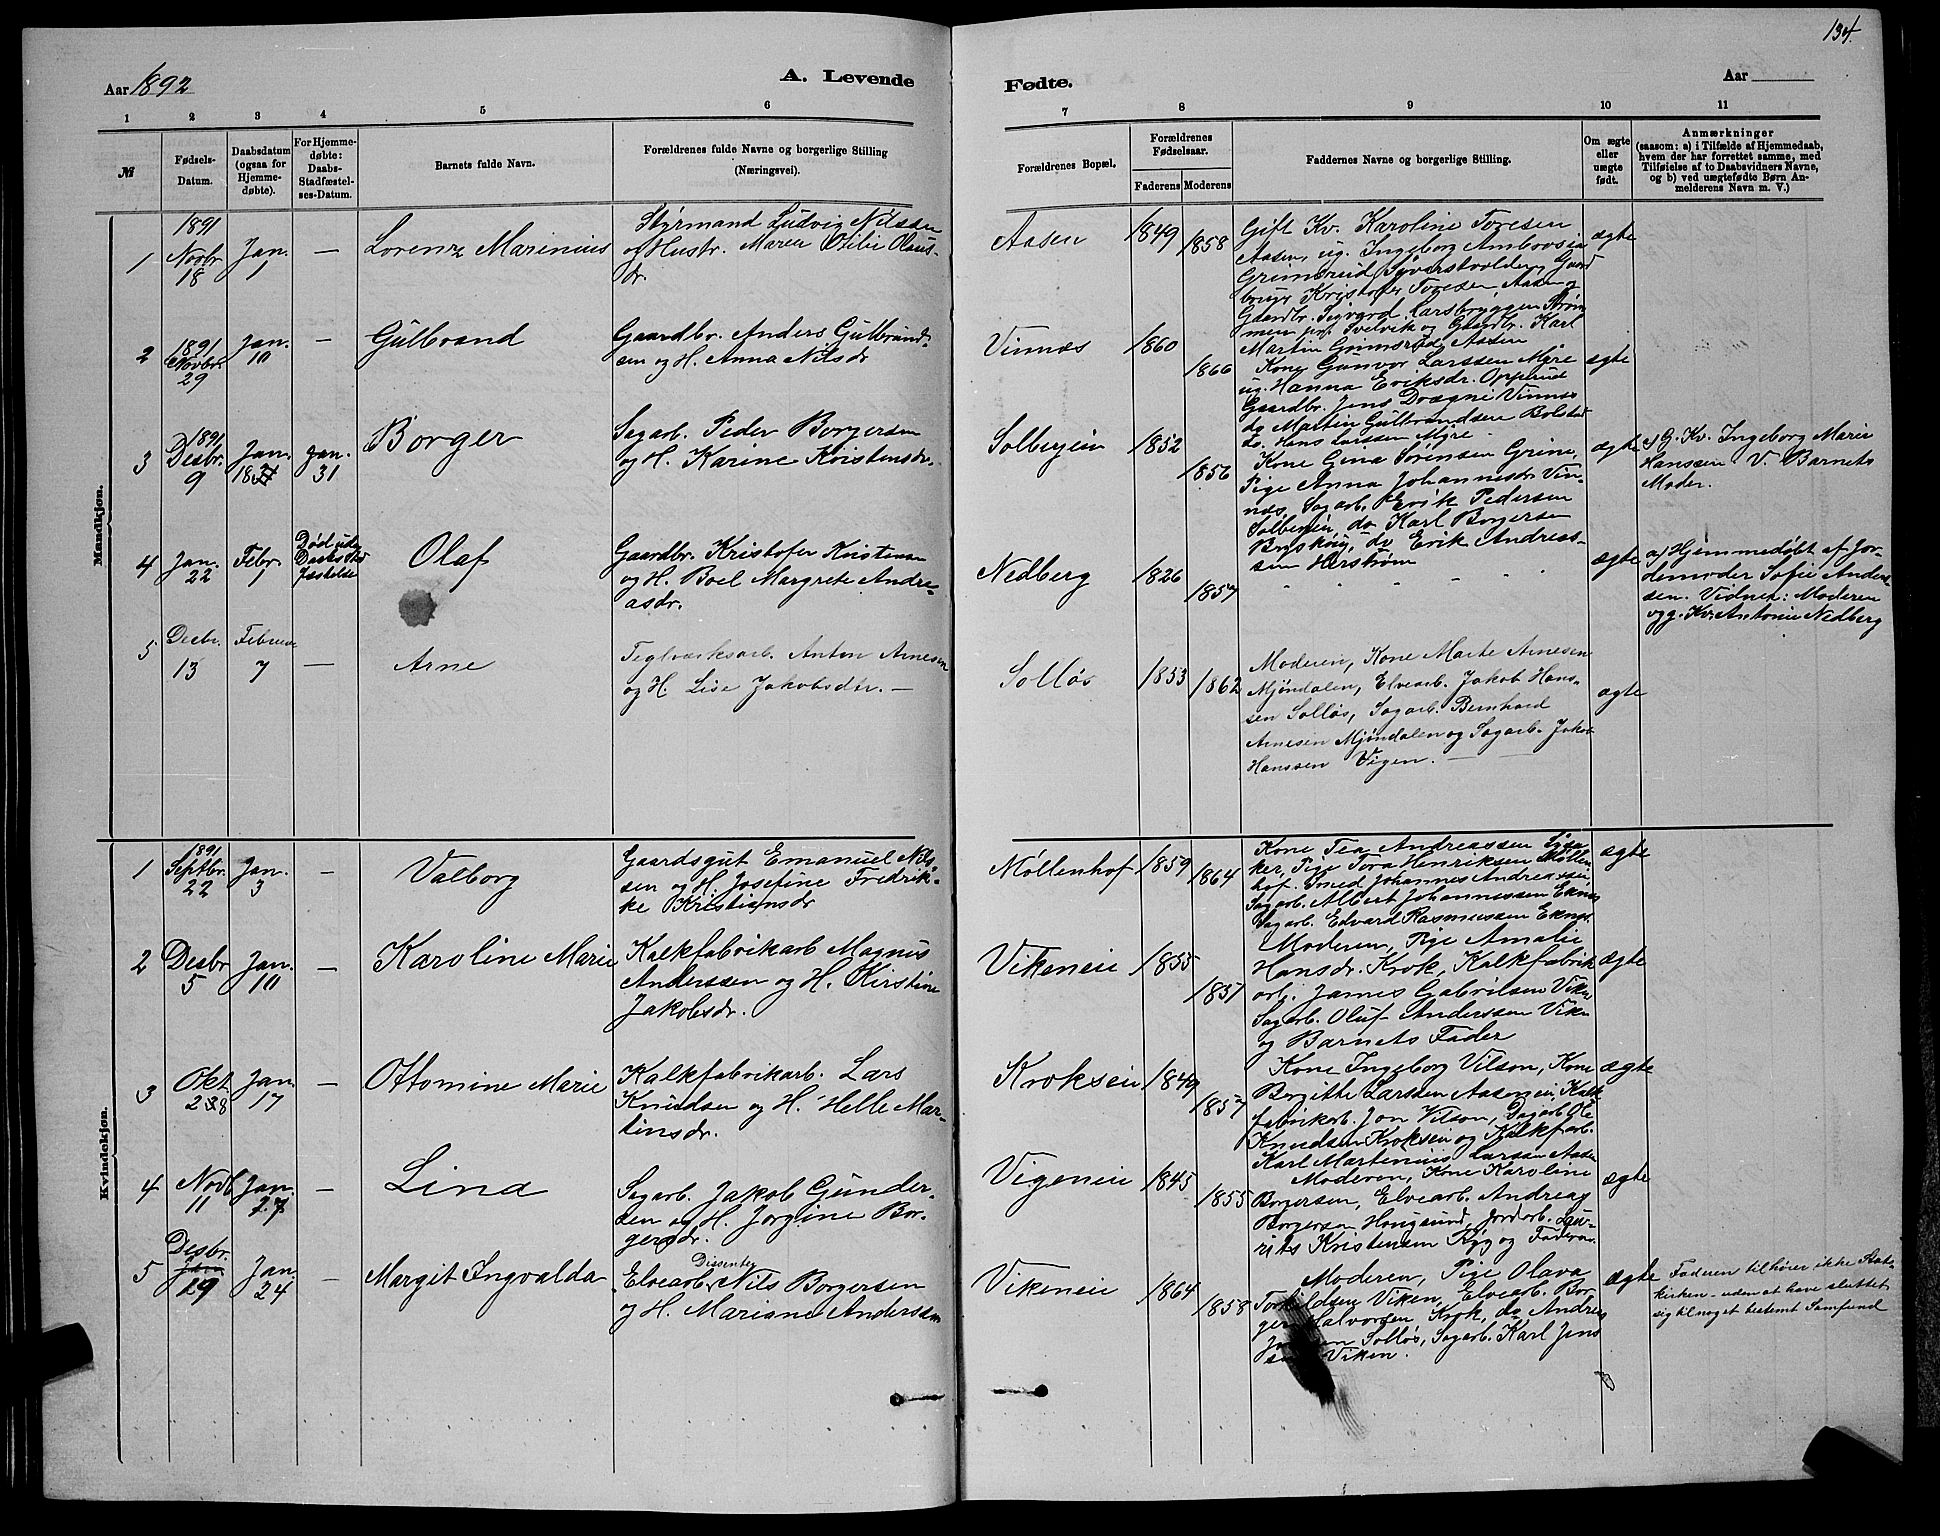 134.
Aar 1892
A. Levende
Fødte.
Aar
1 2 3 4 5 6
7 8 9 10 11
№
Fødsels-
Datum.
Daabsdatum
(ogsaa for
Hjemme-
døbte).
For Hjemme-
døbte:
Daabs-
Stadfæstel-
ses-Datum.
Barnets fulde Navn.
Forældrenes fulde Navne og borgerlige Stilling
(Næringsvei).
Forældrenes Bopæl.
Forældrenes
Fødselsaar.
Faderens Moderens
Faddernes Navne og borgerlige Stilling.
Om ægte
eller
uægte
født.
Anmærkninger
(saasom: a) i Tilfælde af Hjemmedaab,
hvem der har forrettet samme, med
Tilføielse af to Daabsvidners Navne,
og b) ved uægtefødte Børn An-
melderens Navn m. V.)
Mandkjøn.
1
1891
Novbr.
18
Jan.
1
—
Lorenz Marinius
Styrmand Ludvig Nilssen
og Hustr. Maren Otilie Olaus-
dr.
Aasen
1849
1858
Gift Kv. Karoline Toresen
Aasen, ug. Ingeborg Ambrosia
Grimsrud, Gaard
bruger Kristofer Toresen, Aasen og
Gaardbr. Sigvard Larsbryggen Strøm
men pr. Svelvik og Gaardbr. Karl
Martin Grimsrud, Aasen
ægte
2
1891
Novbr.
29
Jan.
10
—
Gulbrand
Gaardbr. Anders Gulbrand-
sen og H. Anna Nilsdr
Vinnæs
1860
1866
Kone Gunvor Larssen Myre
ug. Hanna Eriksdr. Opperud
Gaardbr. Jens Drægni Vinnæs
do Martin Gulbrandsen Bolstad
do. Hans Larssen Myre.
ægte
3
1891
Desbr.
9
Jan.
18
Jan.
31
Borger
Sagarb. Peder Borgersen
og H. Karine Kristensdr.
Solbergein
1852
1856
Kone Gina Sørensen Grine,
Pige Anna Johannesdr Vin-
næs, Sagarb. Erik Pedersen
Solbergein, do Karl Borgersen
Bryskøin, do Erik Andreas-
sen Herstrøm
ægte
a) G. Kv. Ingeborg Marie
Hanssen V. Barnets
Moder.
4
Jan.
22
Febr.
1
Død uden
Daabs Stad
fæstelse
Olaf
Gaardbr. Kristofer Kristensen
og H. Boel Margrete Andre-
asdr.
Nedberg
1826
1857
" " " " "
ægte
a) Hjemmedøbt af Jor-
demoder Sofie Ander
sen. Vidner: Moderen
og g. Kv. Antonie Nedberg
5
Desbr.
13
Februar
7
—
Arne
Teglværksarb. Anton Arnesen
og H. Lise Jakobsdtr. —
Solløs
1853
1862
Moderen, Kone Marte Arnesen
Mjøndalen, Elvearb. Jakob Hans-
sen Solløs, Sagarb. Bernhard
Arnesen Mjøndalen og Sagarb. Jakob
Hanssen Vigen. —
ægte
Kvindekjøn.
1
1891
Septbr.
22
Jan.
3
—
Valborg
Gaardsgut Emanuel Nils-
sen og H. Josefine Fredrik-
ke Kristiansdr
Møllenhof
1859
1864
Kone Tea Andreassen
ker, Pige Tora Henriksen Møllen
hof. Smed Johannes Andreassen
Sagarb. Albert Johannessen Eknes
Sagarb. Edvard Rasmussen Eknes.
ægte
2
Desbr
5
Jan.
10
—
Karoline Marie
Kalkfabrikarb Magnus
Anderssen og H. Kirstine
Jakobsdr.
Vikeneie
1855
1857
Moderen, Pige Amalie
Hansdr. Krok, Kalkfabrik
arb. James Gabrilsen Viken
Sagarb. Oluf Anderssen Viken
og Barnets Fader
ægte
3
Okt.
28
Jan.
17
—
Ottomine Marie
Kalkfabrikarb. Lars
Knudsen og H. Helle Mar-
tinsdr.
Krokseie
1849
1857
Kone Ingeborg Vilson, Kone
Borgitte Larssen Aasengein, Kalk
fabrikarb. Jon Vilson, Dagarb. Ole
Knudsen Krokseie og Kalkfarb.
Karl Martinius Larssen Aasen
ægte
4
Novb.
11
Jan.
—
Lina
Sagarb. Jakob Gunder-
sen og H. Jørgine Bor-
gersdr.
Vigeneie
1845
1855
Moderen, Kone Karoline
Borgersen, Elvearb. Andreas
Borgersen Hougsund, Jordarb. Lau-
rits Kristensen Ryg og Faderen
ægte
5
Desbr.
Jan
19
Jan.
24
—
Margit Ingvalda
Dissenter
Elvearb. Nils Borgersen
og H. Mariane Anderssen
Vikeneie
1864
1858
Moderen, Pige Olava
Torkildsen Viken, Elvearb. Bor-
ger Halvorsen Krok, do Andreas
Solløs, Sagarb. Karl Jens
sen Viken.
ægte
Faderen tilhører ikke Stats-
kirken – uden at have sluttet
sig til noget bestemt Samfund